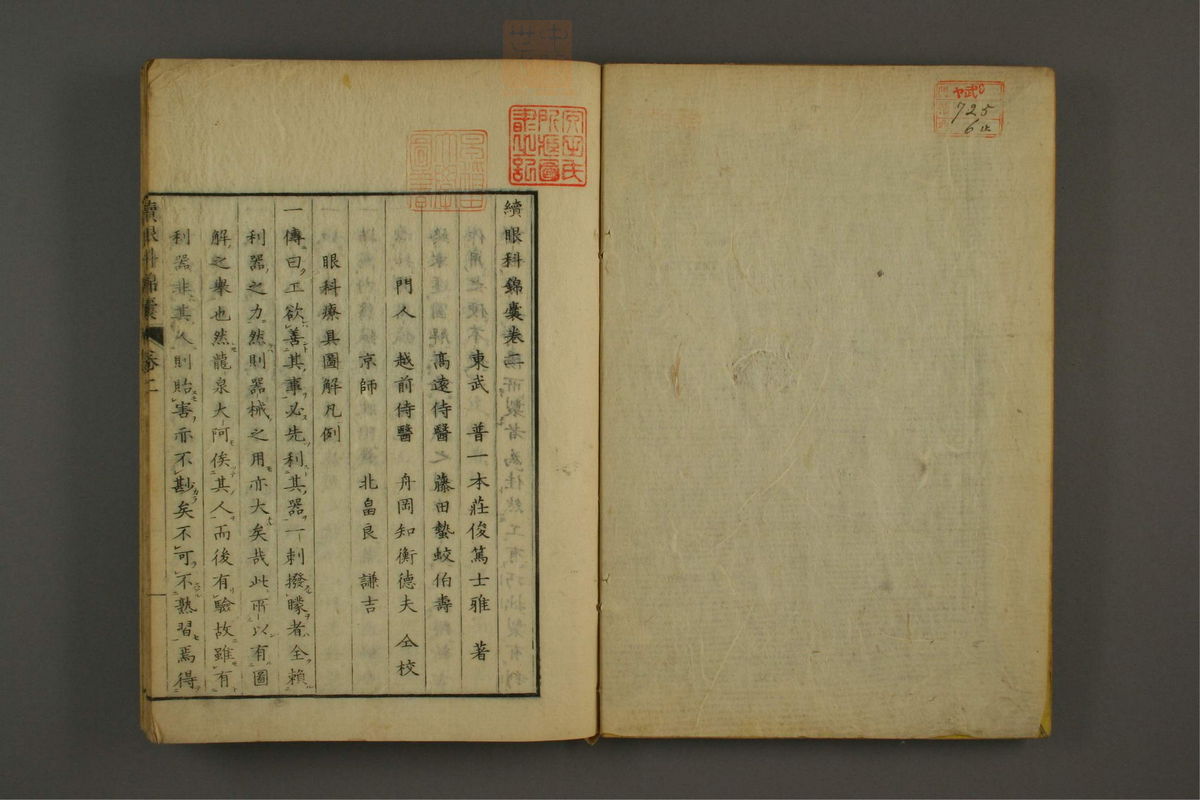 續眼科錦囊卷二
東武 普一本莊俊篤士雅 著
高遠侍醫 藤田蟄蛟伯壽
門人 越前侍醫 舟岡知衡德夫 仝校
京師 北畠良 謙吉
眼科療具圖解凡例
一傳曰工欲善其事必先利其器一刺撥矇者全賴
利器之力然則器械之用亦大矣哉此所以有圖
解之舉也然龍泉大阿俟其人而後有驗故雖有
利器非其人則貽害亦不尠矣不可不熟習焉得
續眼科錦囊 卷二 一
原田氏
所漚圖
書之記
725
6止